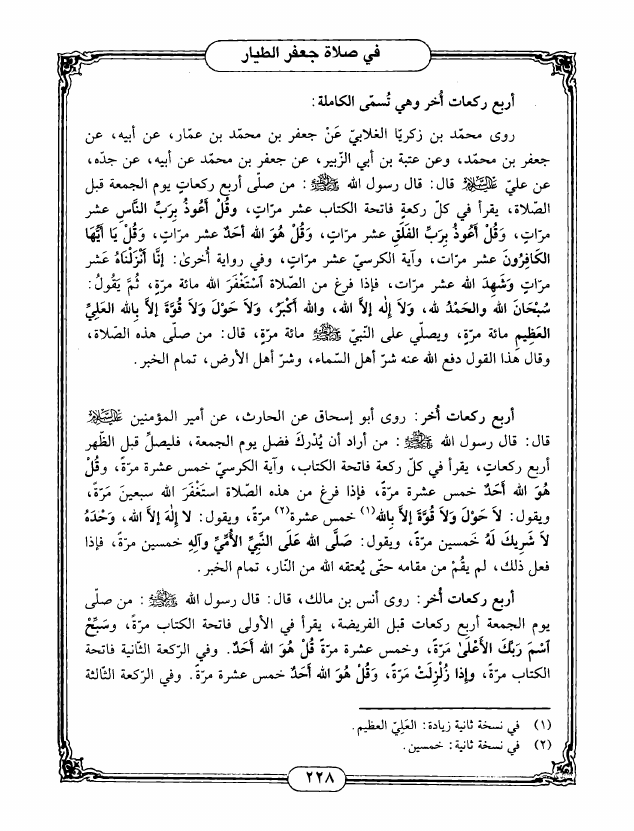 في صلاة جعفر الطيار
أربع ركعات أُخر وهي تُسمّى الكاملة:
روى محمّد بن زكريّا الغلابيّ عَنْ جعفر بن محمّد بن عمّار، عن أبيه، عن
جعفر بن محمّد، وعن عتبة بن أبي الزّبير، عن جعفر بن محمّد عن أبيه، عن جدّه،
عن عليّ عليه السلام قال: قال رسول الله ﷺ: من صلّى أربع ركعاتٍ يوم الجمعة قبل
الصّلاة، يقرأ في كلّ ركعةٍ فاتحة الكتاب عشر مرّات، وقُلْ أَعُوذُ بِرَبِّ النَّاسِ عشر
مرّات، وَقُلْ أَعُوذُ بِرَبِّ الفَلَقِ عشر مرّات، وَقُلْ هُوَ الله أَحَدٌ عشر مرّات، وَقُلْ يَا أَيُّهَا
الكَافِرُونَ عشر مرّات، وآية الكرسيّ عشر مرّات، وفي رواية أُخرىٰ: إِنَّا أَنْزَلْنَاهُ عَشر
مرّاتٍ وَشَهِدَ الله عشر مرّات، فإذا فرغ من الصّلاة اَسْتَغْفَرَ الله مائة مرّةٍ، ثُمَّ يَقُولُ:
سُبْحَانَ الله والحَمْدُ لله، وَلَا إِله إلاَّ الله، والله أَكْبَرُ، وَلَا حَوْلَ وَلَا قُوَّةَ إلاَّ بِالله العَلِيِّ
العَظِيمِ مائة مرّةٍ، ويصلّي على النّبيّ ﷺ مائة مرّةٍ، قال: من صلّى هذه الصّلاة،
وقال هٰذا القول دفع الله عنه شرّ أهل السّماء، وشرّ أهل الأرض، تمام الخبر.
أربع ركعات أُخر: روى أبو إسحاق عن الحارث، عن أمير المؤمنين عليه السلام
قال: قال رسول الله ﷺ: من أراد أن يُدْركَ فضل يوم الجمعة، فليصلِّ قبل الظّهر
أربع ركعاتٍ، يقرأ في كلّ ركعة فاتحة الكتاب، وآية الكرسيّ خمس عشرة مرّةً، وقُلْ
هُوَ الله أَحَدٌ خمس عشرة مرّةً، فإذا فرغ من هذه الصّلاة استَغْفَرَ الله سبعينَ مَرّةً،
ويقول: لاَ حَوْلَ وَلَا قُوَّةَ إلاَّ بِالله(١) خمس عشرة(٢) مرّةً، ويقول: لا إِلٰهَ إلاَّ الله، وَحْدَهُ
لاَ شَرِيكَ لَهُ خَمسين مرّةً، ويقول: صَلَّى الله عَلَى النَّبِيِّ الأُمِّيِّ وآلِهِ خمسين مرّةً، فإذا
فعل ذلك، لم يقُمْ من مقامه حتّى يُعتقه الله من النّار، تمام الخبر.
أربع ركعات أُخر: روى أنس بن مالك، قال: قال رسول الله ﷺ: من صلّى
يوم الجمعة أربع ركعات قبل الفريضة، يقرأ في الأولى فاتحة الكتاب مرّةً، وسَبِّحْ
اَسْمَ رَبِّكَ الأَعْلَىٰ مَرّةً، وخمس عشرة مرّةً قُلْ هُوَ الله أَحَدٌ. وفي الرّكعة الثّانية فاتحة
الكتاب مرّةً، وإِذا زُلْزِلَتْ مَرّةً، وَقُلْ هُوَ الله أَحَدٌ خمس عشرة مرّةً. وفي الرّكعة الثّالثة
(١) في نسخة ثانية زيادة: العَلِيّ العظيم.
(٢) في نسخة ثانية: خمسين.
٢٢٨